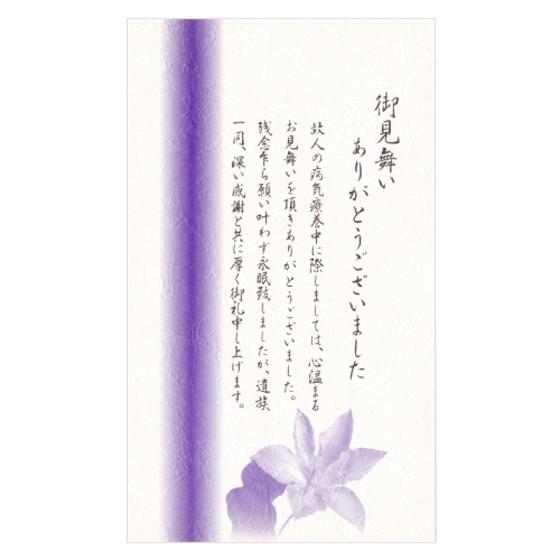 御見舞い
ありがとうございました
故人の病気療養中に際しましては、心温まる
お見舞いを頂きありがとうございました。
残念乍ら願い叶わず永眠致しましたが、遺族
一同、深い感謝と共に厚く御礼申し上げます。